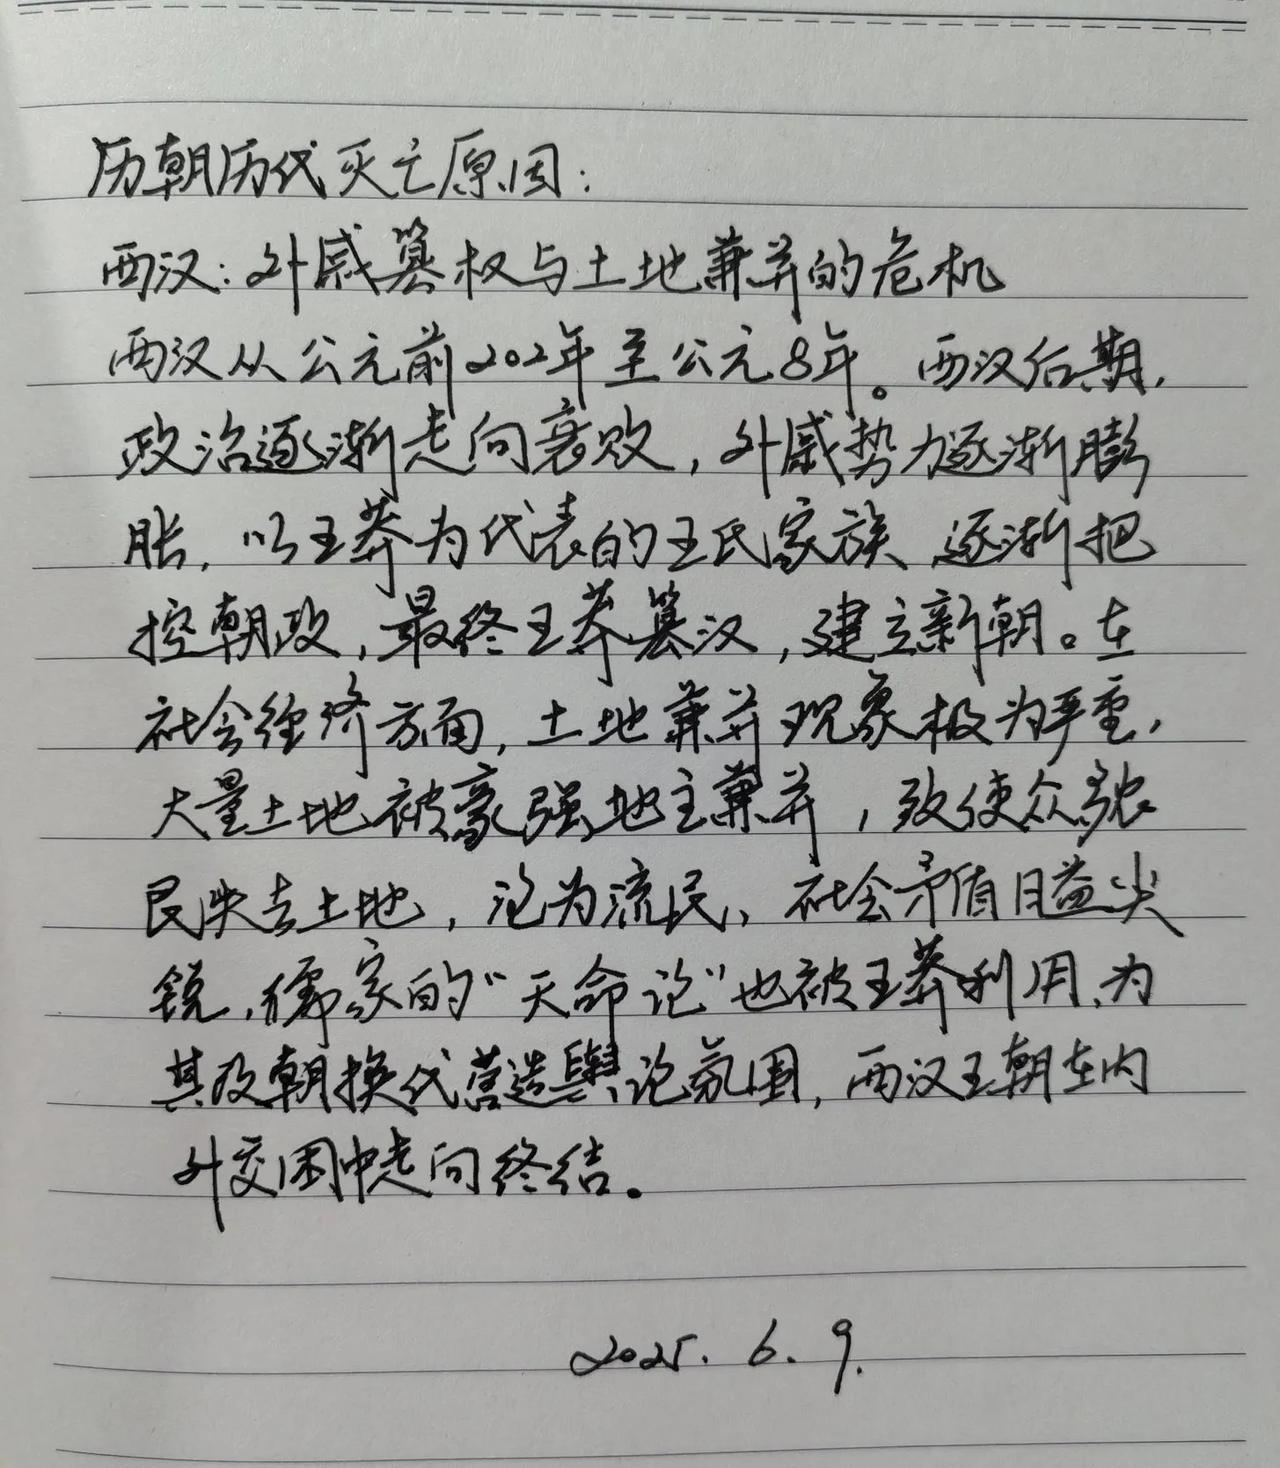 历朝历代灭亡原因：
西汉：外戚篡权与土地兼并的危机
西汉从公元前202年至公元8年。西汉后期，
政治逐渐走向衰败，外戚势力逐渐膨
胀，以王莽为代表的王氏家族逐渐把
控朝政，最终王莽篡汉，建立新朝。在
社会经济方面，土地兼并现象极为严重，
大量土地被豪强地主兼并，致使众多农
民失去土地，沦为流民、社会矛盾日益尖
锐，儒家的“天命论”也被王莽利用，为
其改朝换代营造舆论氛围，西汉王朝在内
外交困中走向终结。
2025.6.9.